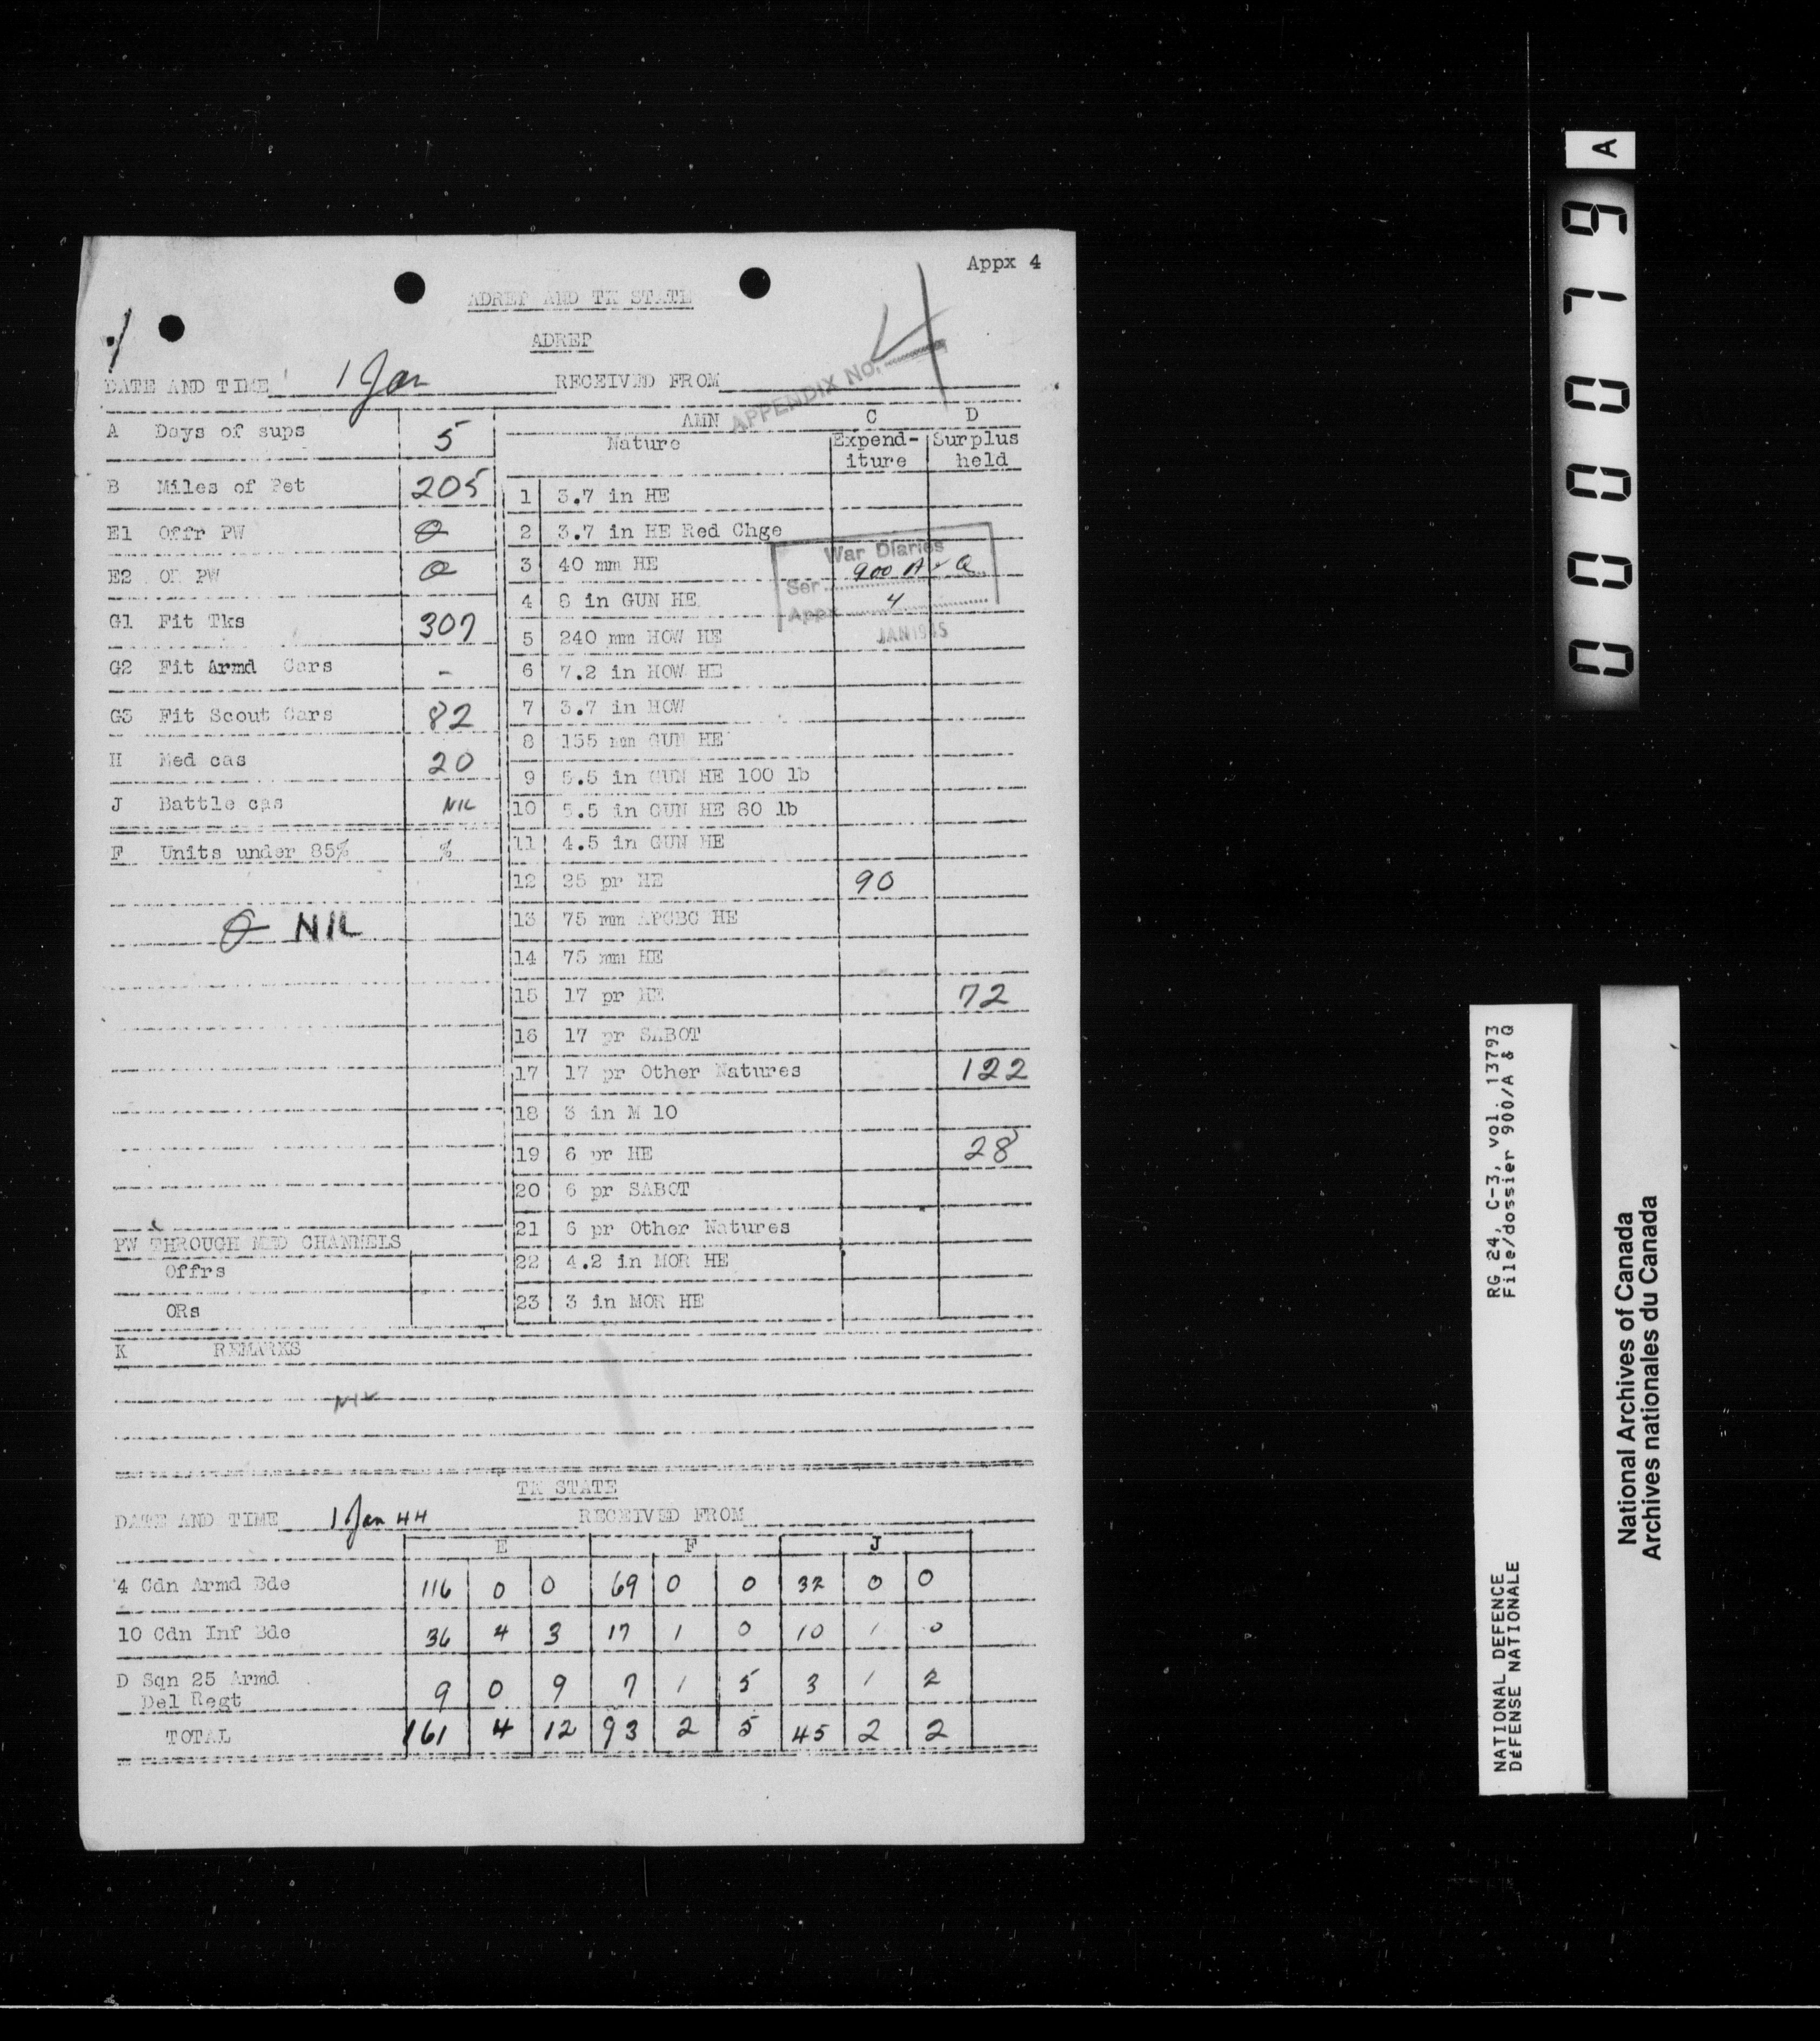 Appx 4
ADREP AND TK STATE
4
ADREP
APPENDIX NO.
DATE AND TIME 1 Jan RECEIVED FROM
AMN C D
A Days of sups 5
Nature Expend- Surplus
iture held
B Miles of Pet 205
1 3.7 in HE
E1 Offr PW 0
2 3.7 in HE Red Chge
War Diaries
E2 OR PW 0
3 40 mm HE
Ser 900 A & Q
4 8 in GUN HE
Appx 4
G1 Fit Tks 307
5 240 mm HOW HE
JAN 1945
G2 Fit Armd Cars -
6 7.2 in HOW HE
G3 Fit Scout Cars 82
7 3.7 in HOW
8 155 mm GUN HE
H Med cas 20
9 5.5 in GUN HE 100 lb
J Battle cas NIL
10 5.5 in GUN HE 80 lb
F Units under 85% %
11 4.5 in GUN HE
12 25 pr HE 90
0 NIL
13 75 mm APCBC HE
14 75 mm HE
15 17 pr HE 72
16 17 pr SABOT
17 17 pr Other Natures 122
18 3 in M 10
19 6 pr HE 28
20 6 pr SABOT
21 6 pr Other Natures
PW THROUGH MED CHANNELS
22 4.2 in MOR HE
Offrs
23 3 in MOR HE
ORs
K REMARKS
NIL
TK STATE
DATE AND TIME 1 Jan 44 RECEIVED FROM
E F J
4 Cdn Armd Bde 116 0 0 69 0 0 32 0 0
10 Cdn Inf Bde 36 4 3 17 1 0 10 1 0
D Sqn 25 Armd
Del Regt 9 0 9 7 1 5 3 1 2
TOTAL 161 4 12 93 2 5 45 2 2
A
000079
RG 24, C-3, vol. 13793
File/dossier 900/A & Q
NATIONAL DEFENCE
DÉFENSE NATIONALE
National Archives of Canada
Archives nationales du Canada